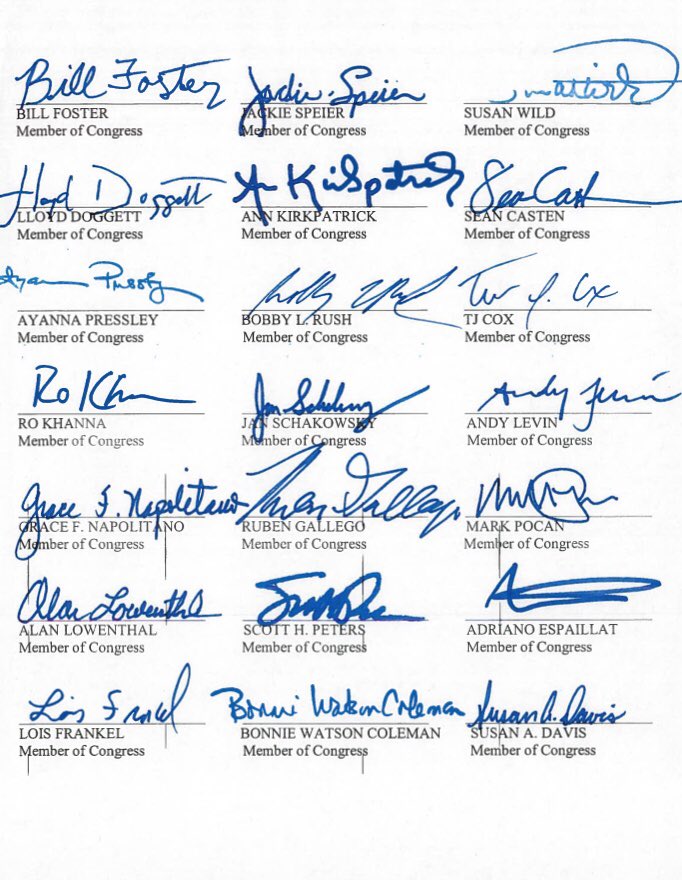 Bill Foster
Jackie Speier
BILL FOSTER
Member of Congress
JACKIE SPEIER
Member of Congress
SUSAN WILD
Member of Congress
Lloyd Doggett
Ann Kirkpatrick
Sean Casten
LLOYD DOGGETT
Member of Congress
ANN KIRKPATRICK
Member of Congress
SEAN CASTEN
Member of Congress
Ayanna Pressley
TJ Cox
AYANNA PRESSLEY
Member of Congress
BOBBY L. RUSH
Member of Congress
TJ COX
Member of Congress
Ro Khanna
Jan Schakowsky
Andy Levin
RO KHANNA
Member of Congress
JAN SCHAKOWSKY
Member of Congress
ANDY LEVIN
Member of Congress
Grace F. Napolitano
Ruben Gallego
GRACE F. NAPOLITANO
Member of Congress
RUBEN GALLEGO
Member of Congress
MARK POCAN
Member of Congress
Alan Lowenthal
ALAN LOWENTHAL
Member of Congress
SCOTT H. PETERS
Member of Congress
ADRIANO ESPAILLAT
Member of Congress
Lois Frankel
Bonnie Watson Coleman
Susan A. Davis
LOIS FRANKEL
Member of Congress
BONNIE WATSON COLEMAN
Member of Congress
SUSAN A. DAVIS
Member of Congress